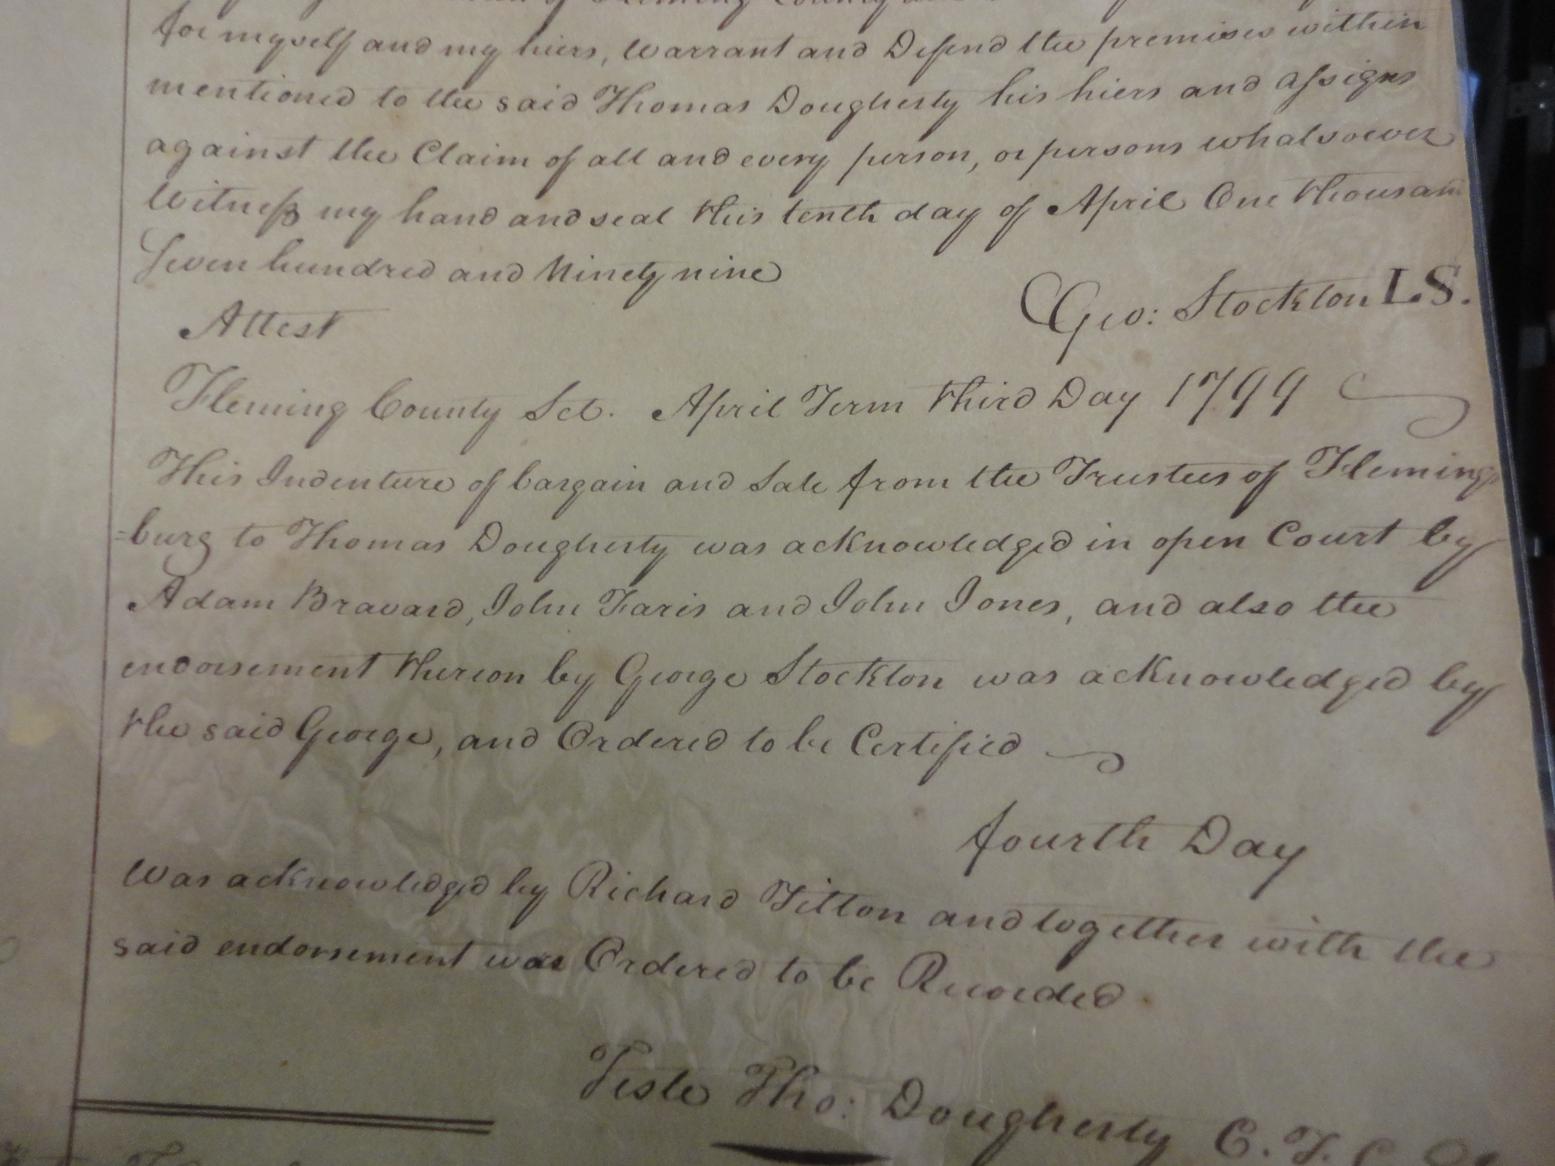 of Fleming County
for myself and my hiers, warrant and Defend the premises within
mentioned to the said Thomas Dougherty his hiers and assigns
against the Claim of all and every person, or persons whatsoever
Witness my hand and seal this tenth day of April One thousan
Seven hundred and Ninety nine
Geo: Stockton LS.
Attest
Fleming County Sct. April Term third Day 1799
This Indenture of bargain and Sale from the Trustees of Flemings
=burg to Thomas Dougherty was acknowledged in open Court by
Adam Bravard, John Faris and John Jones, and also the
endorsement thereon by George Stockton was acknowledged by
the said George, and Ordered to be Certified
fourth Day
Was acknowledged by Richard Tilton and together with the
said endorsement was Ordered to be Recorded
Teste Tho: Dougherty C. F. C.